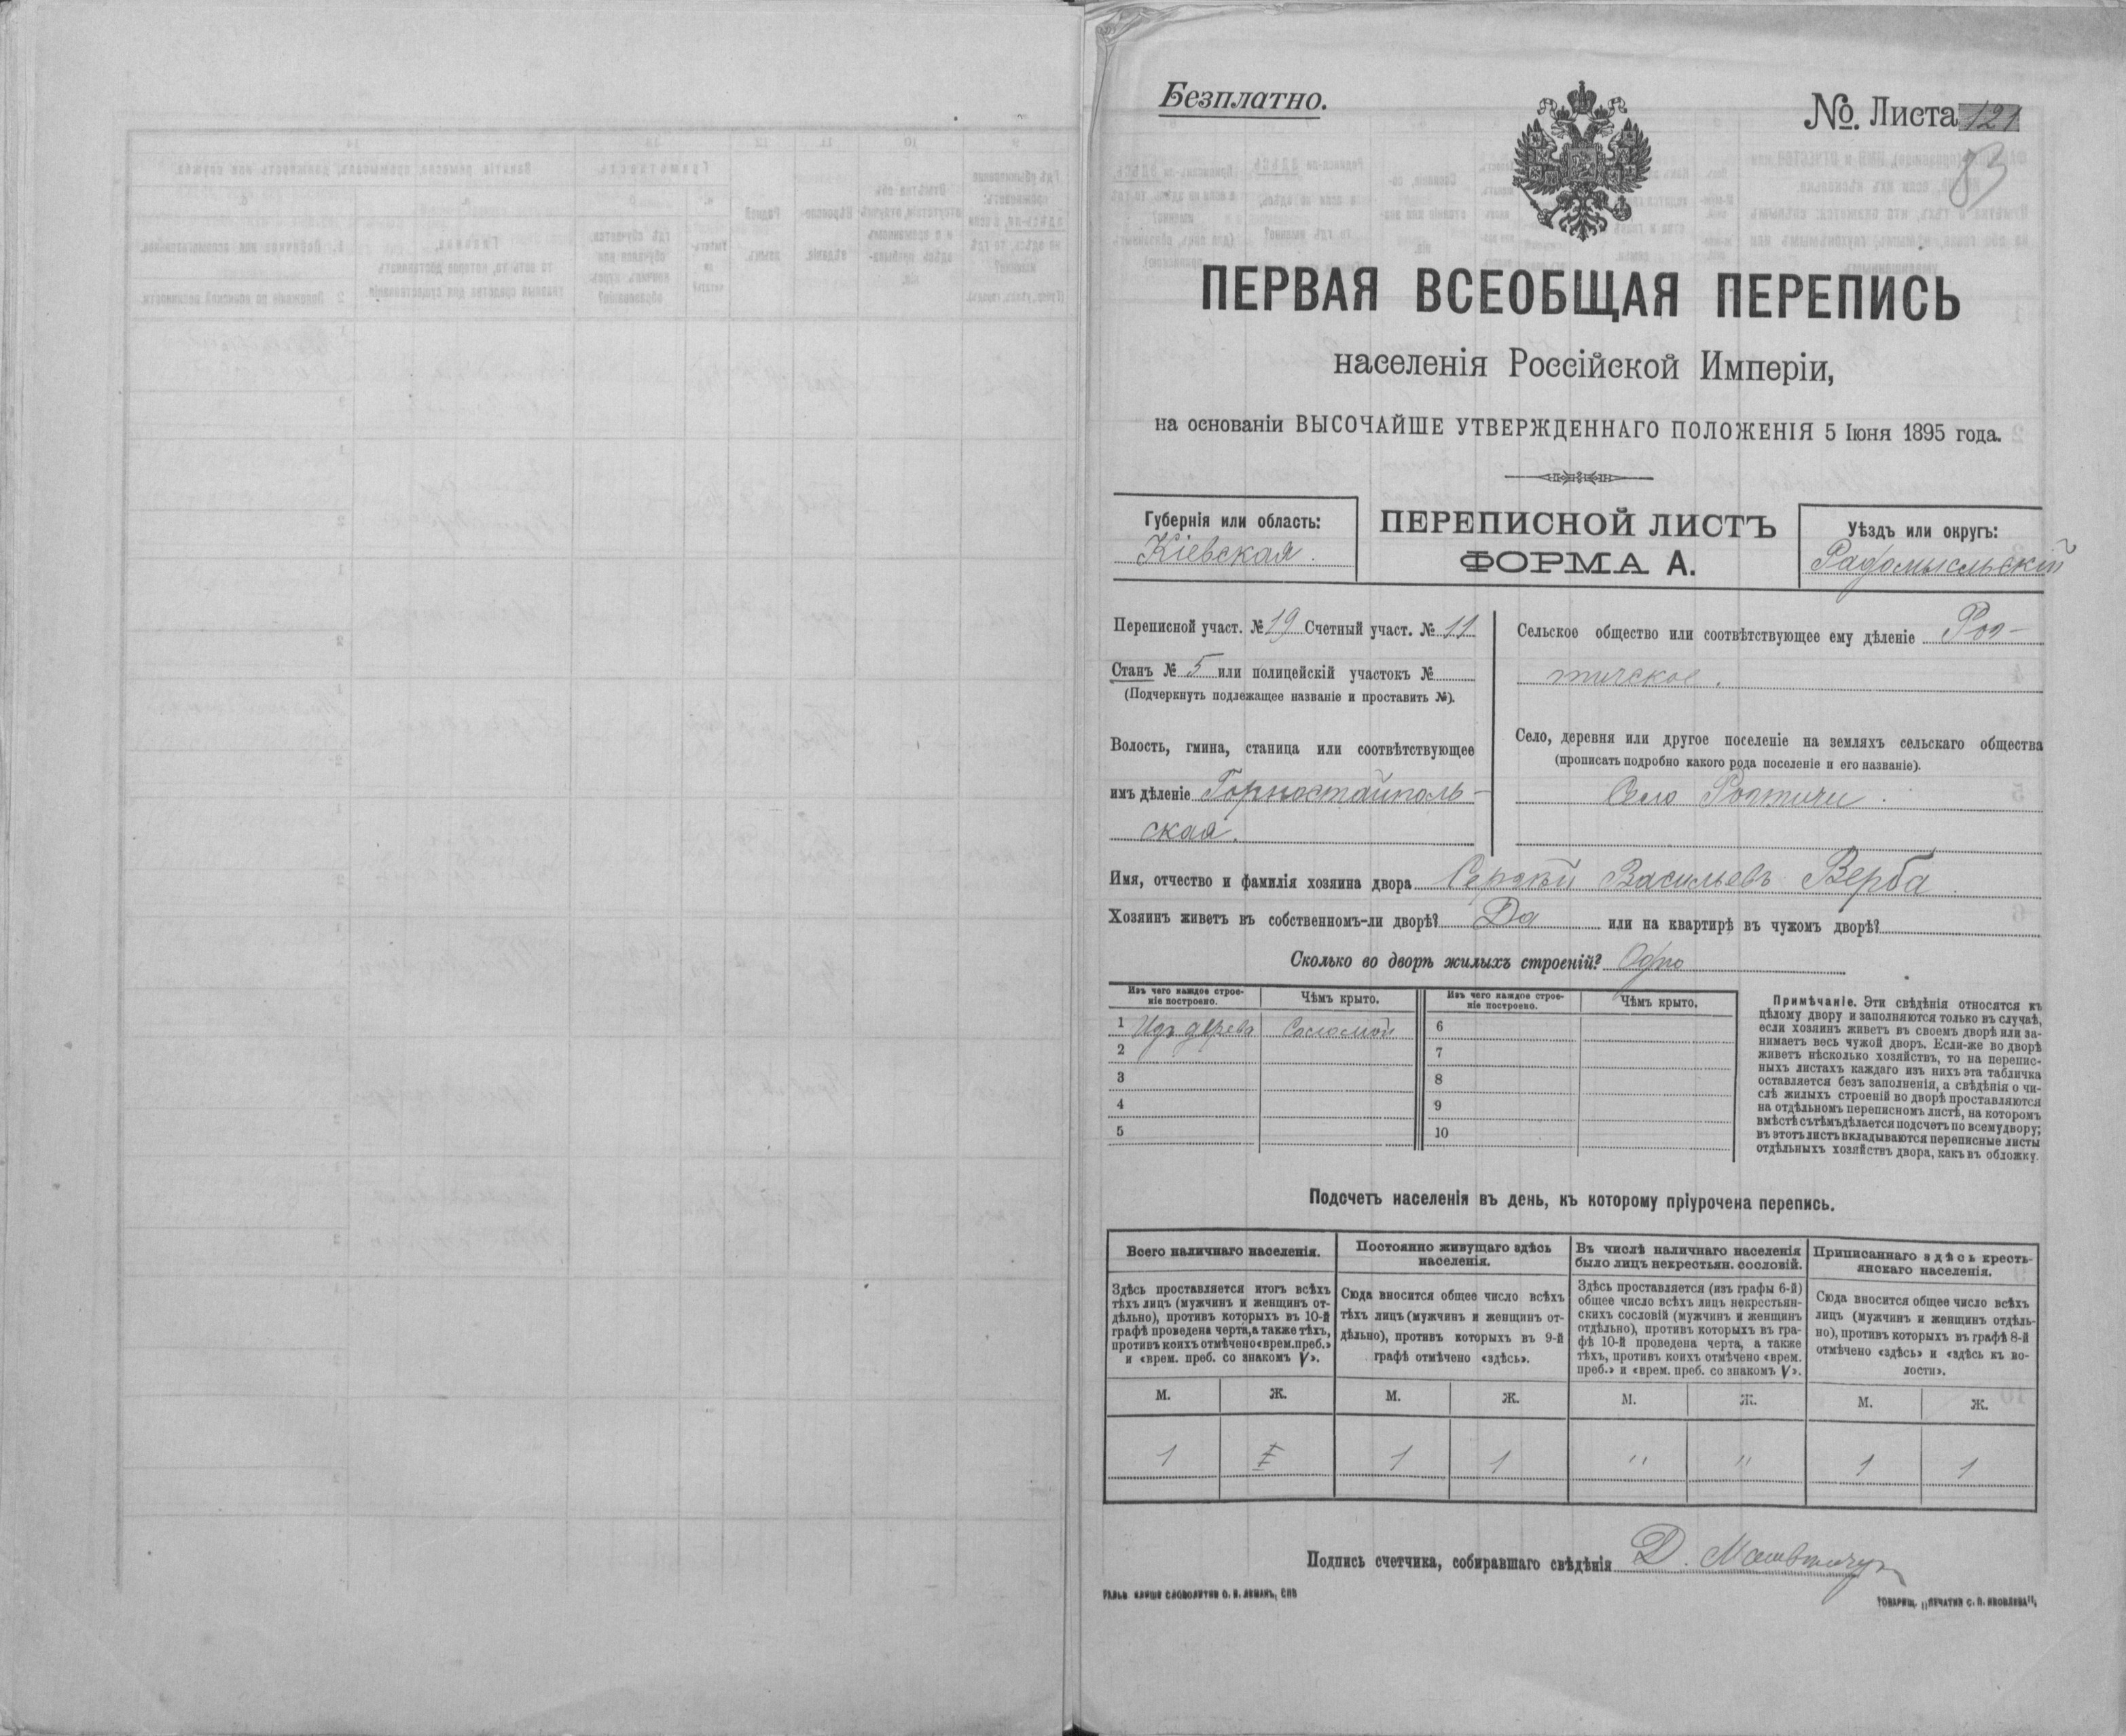 Безплатно.
№. Листа 121
83
ПЕРВАЯ ВСЕОБЩАЯ ПЕРЕПИСЬ
населенія Россійской Имперіи,
на основаніи ВЫСОЧАЙШЕ УТВЕРЖДЕННАГО ПОЛОЖЕНІЯ 5 Іюня 1895 года.
Губернія или область:
Кіевская.
ПЕРЕПИСНОЙ ЛИСТЪ
ФОРМА А.
Уѣздъ или округъ:
Радомысльскій
Переписной участ. № 19 Счетный участ. № 11
Станъ № 5 или полицейскій участокъ №
(Подчеркнуть подлежащее названіе и проставить №).
Волость, гмина, станица или соотвѣтствующее
имъ дѣленіе Горностайполь-
ская.
Сельское общество или соотвѣтствующее ему дѣленіе Роз-
тическое.
Село, деревня или другое поселеніе на земляхъ сельскаго общества
(прописать подробно какого рода поселеніе и его названіе).
Село
Имя, отчество и фамилія хозяина двора Сергѣй Васильевъ Верба
Хозяинъ живетъ въ собственномъ-ли дворѣ? Да или на квартирѣ въ чужомъ дворѣ?
Сколько во дворѣ жилыхъ строеній? Одно
Изъ чего каждое строе-
ніе построено.
Чѣмъ крыто.
Изъ чего каждое строе-
ніе построено.
Чѣмъ крыто.
1 Изъ дерева Соломой 6
2 7
3 8
4 9
5 10
Примѣчаніе. Эти свѣдѣнія относятся къ
цѣлому двору и заполняются только въ случаѣ,
если хозяинъ живетъ въ своемъ дворѣ или за-
нимаетъ весь чужой дворъ. Если-же во дворѣ
живетъ нѣсколько хозяйствъ, то на перепис-
ныхъ листахъ каждаго изъ нихъ эта табличка
оставляется безъ заполненія, а свѣдѣнія о чи-
слѣ жилыхъ строеній во дворѣ проставляются
на отдѣльномъ переписномъ листѣ, на которомъ
вмѣстѣ съ тѣмъ дѣлается подсчетъ по всему двору;
въ этотъ листъ вкладываются переписные листы
отдѣльныхъ хозяйствъ двора, какъ въ обложку.
Подсчетъ населенія въ день, къ которому пріурочена перепись.
Всего наличнаго населенія.
Здѣсь проставляется итогъ всѣхъ
тѣхъ лицъ (мужчинъ и женщинъ от-
дѣльно), противъ которыхъ въ 10-й
графѣ проведена черта, а также тѣхъ,
противъ коихъ отмѣчено «врем. преб.»
и «врем. преб. со знакомъ V».
Постоянно живущаго здѣсь
населенія.
Сюда вносится общее число всѣхъ
тѣхъ лицъ (мужчинъ и женщинъ от-
дѣльно), противъ которыхъ въ 9-й
графѣ отмѣчено «здѣсь».
Въ числѣ наличнаго населенія
было лицъ некрестьян. сословій.
Здѣсь проставляется (изъ графы 6-й)
общее число всѣхъ лицъ некрестьян-
скихъ сословій (мужчинъ и женщинъ
отдѣльно), противъ которыхъ въ гра-
фѣ 10-й проведена черта, а также
тѣхъ, противъ коихъ отмѣчено «врем.
преб.» и «врем. преб. со знакомъ V».
Приписаннаго здѣсь кресть-
янскаго населенія.
Сюда вносится общее число всѣхъ
лицъ (мужчинъ и женщинъ отдѣль-
но), противъ которыхъ въ графѣ 8-й
отмѣчено «здѣсь» и «здѣсь къ во-
лости».
М. Ж. М. Ж. М. Ж. М. Ж.
1 1 1 1 " " 1 1
Подпись счетчика, собиравшаго свѣдѣнія Д.
РАЛЬФ КЛИШЕ СЛОВОЛИТНИ О. И. ЛЕМАНЪ, СПБ
ТОВАРИЩ. „ПЕЧАТНЯ С. П. ЯКОВЛЕВА",